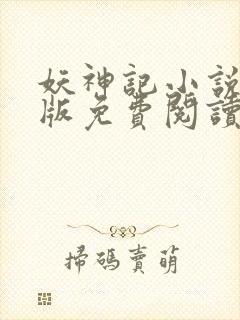 妖神記小說
版免費閱讀
掃碼賣萌